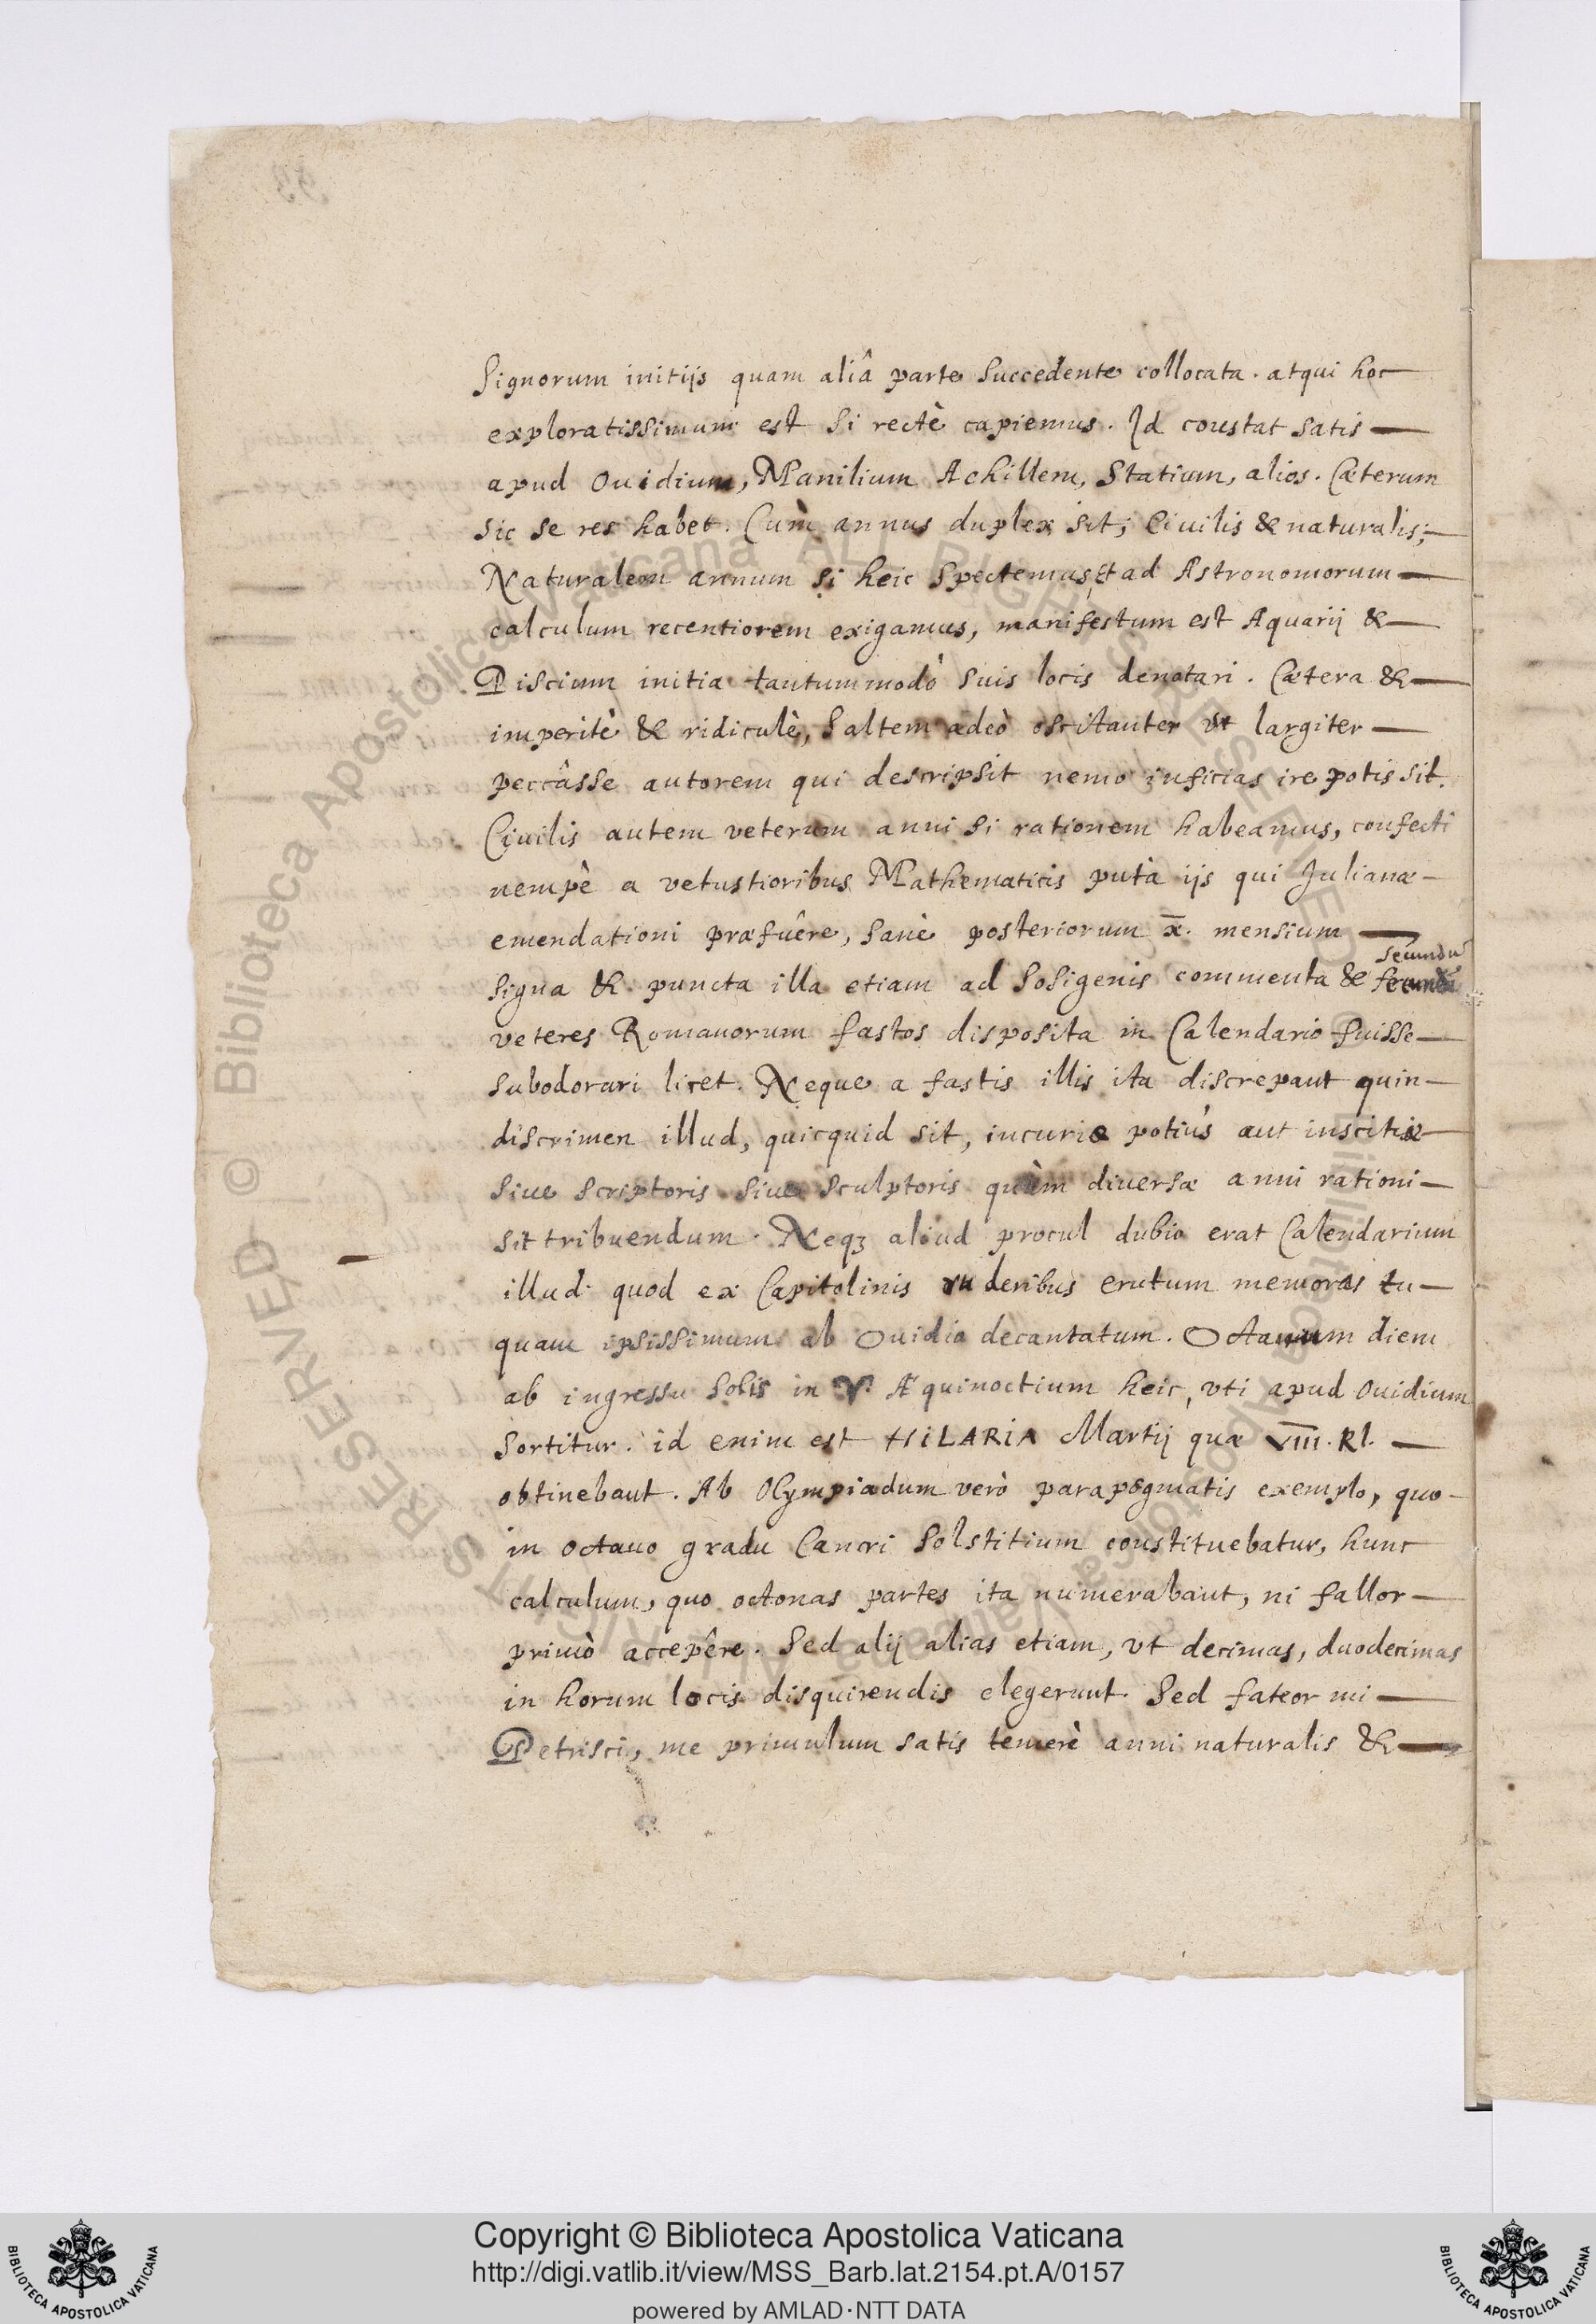 Signorum initijs quam aliâ parte succedente collocata. atqui hoc
exploratissimum est si rectè capiemus. Id constat satis
apud Ouidium, Manilium Achillem, Statium, alios. Cæterum
sic se res habet. Cùm annus duplex sit; Ciuilis & naturalis;
Naturalem annum si heic spectemus, & ad Astronomorum
calculum recentiorem exigamus, manifestum est Aquarij &
Piscium initia tantummodò suis locis denotari. Cætera &
imperitè & ridiculè, saltem adeò oscitanter vt largiter
peccâsse autorem qui descripsit nemo inficias ire potis sit.
Ciuilis autem veterum anni si rationem habeamus, confecti
nempè a vetustioribus Mathematicis putà ijs qui Julianæ
emendationi præfuêre, sanè posteriorum x̄. mensium
secundũ
signa & puncta illa etiam ad Sosigenis commenta &
veteres Romanorum fastos disposita in Calendario fuisse
subodorari licet. Neque a fastis illis ita discrepant quin
discrimen illud, quicquid sit, incuriæ potiùs aut inscitiæ
siue scriptoris siue sculptoris quàm diuersæ anni rationi
sit tribuendum. Neqꝫ aliud procul dubio erat Calendarium
illud quod ex Capitolinis ruderibus erutum memoras tu
quam ipsissimum ab Ouidio decantatum. Octauum diem
ab ingressu Solis in ♈. Æquinoctium heic, vti apud Ouidium
sortitur. id enim est HILARIA Martij quæ VIII. Kl.
obtinebant. Ab Olympiadum verò parapegmatis exemplo, quo
in octauo gradu Cancri Solstitium constituebatur, hunc
calculum, quo octonas partes ita numerabant, ni fallor
primò accepêre. Sed alij alias etiam, vt decimas, duodecimas
in horum locis disquirendis elegerunt. Sed fateor mi
Petrisci, me primulum satis temerè anni naturalis &
Copyright © Biblioteca Apostolica Vaticana
http://digi.vatlib.it/view/MSS_Barb.lat.2154.pt.A/0157
powered by AMLAD·NTT DATA
BIBLIOTECA APOSTOLICA VATICANA
BIBLIOTECA APOSTOLICA VATICANA